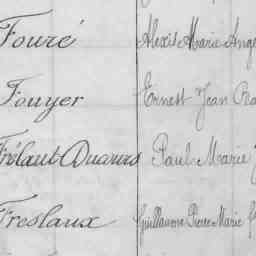 Fouré Alexis Marie Ange
Fouyer Ernest Jean
Frélaut Ducours Paul Marie
Freslaux Guillaume Pierre Marie